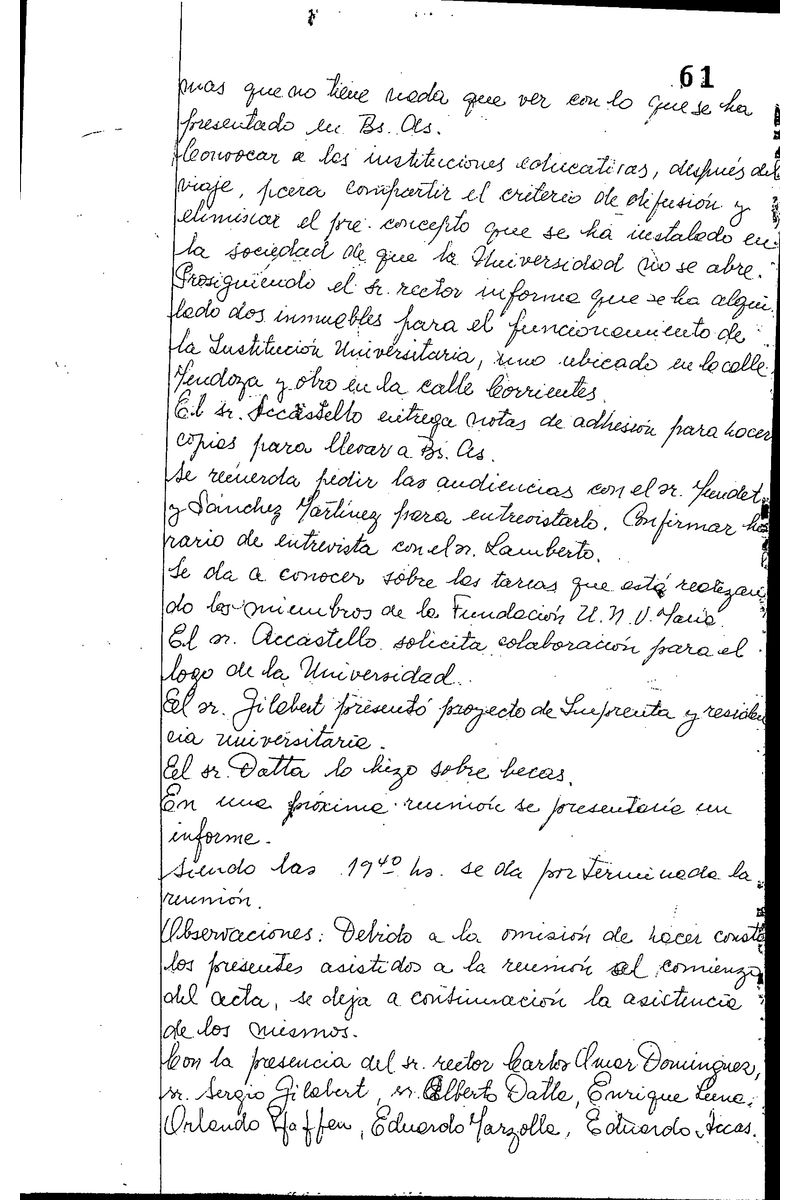 61
mas que no tiene nada que ver con lo que se ha
presentado en Bs. As.
Convocar a las instituciones educativas, después del
viaje, para compartir el criterio de difusión y
eliminar el pre-concepto que se ha instalado en
la sociedad de que la Universidad no se abre.
Prosiguiendo el sr. rector informa que se ha alqui
lado dos inmuebles para el funcionamiento de
la Institución Universitaria, uno ubicado en la calle
Mendoza y otro en la calle Corrientes.
El sr. Accastello entrega notas de adhesión para hacer
copias para llevar a Bs. As.
Se recuerda pedir las audiencias con el sr.
y Sánchez Martínez para entrevistarlo. Confirmar ho
rario de entrevista con el sr. Lamberto.
Se da a conocer sobre las tareas que está realizan
do los miembros de la Fundación U. N. V. María
El sr. Accastello solicita colaboración para el
logo de la Universidad.
El sr. Gilabert presentó proyecto de Imprenta y residen
cia universitaria.
El sr. Datta lo hizo sobre becas.
En una próxima reunión se presentaría un
informe.
Siendo las 19⁴⁰ hs. se da por terminada la
reunión.
Observaciones: Debido a la omisión de hacer consta
los presentes asistidos a la reunión al comienzo
del acta, se deja a continuación la asistencia
de los mismos.
Con la presencia del sr. rector Carlos Omar Dominguez,
sr. Sergio Gilabert, sr. Alberto Datta, Enrique
Orlando Pfaffen, Eduardo Marzolla, Eduardo Accas.